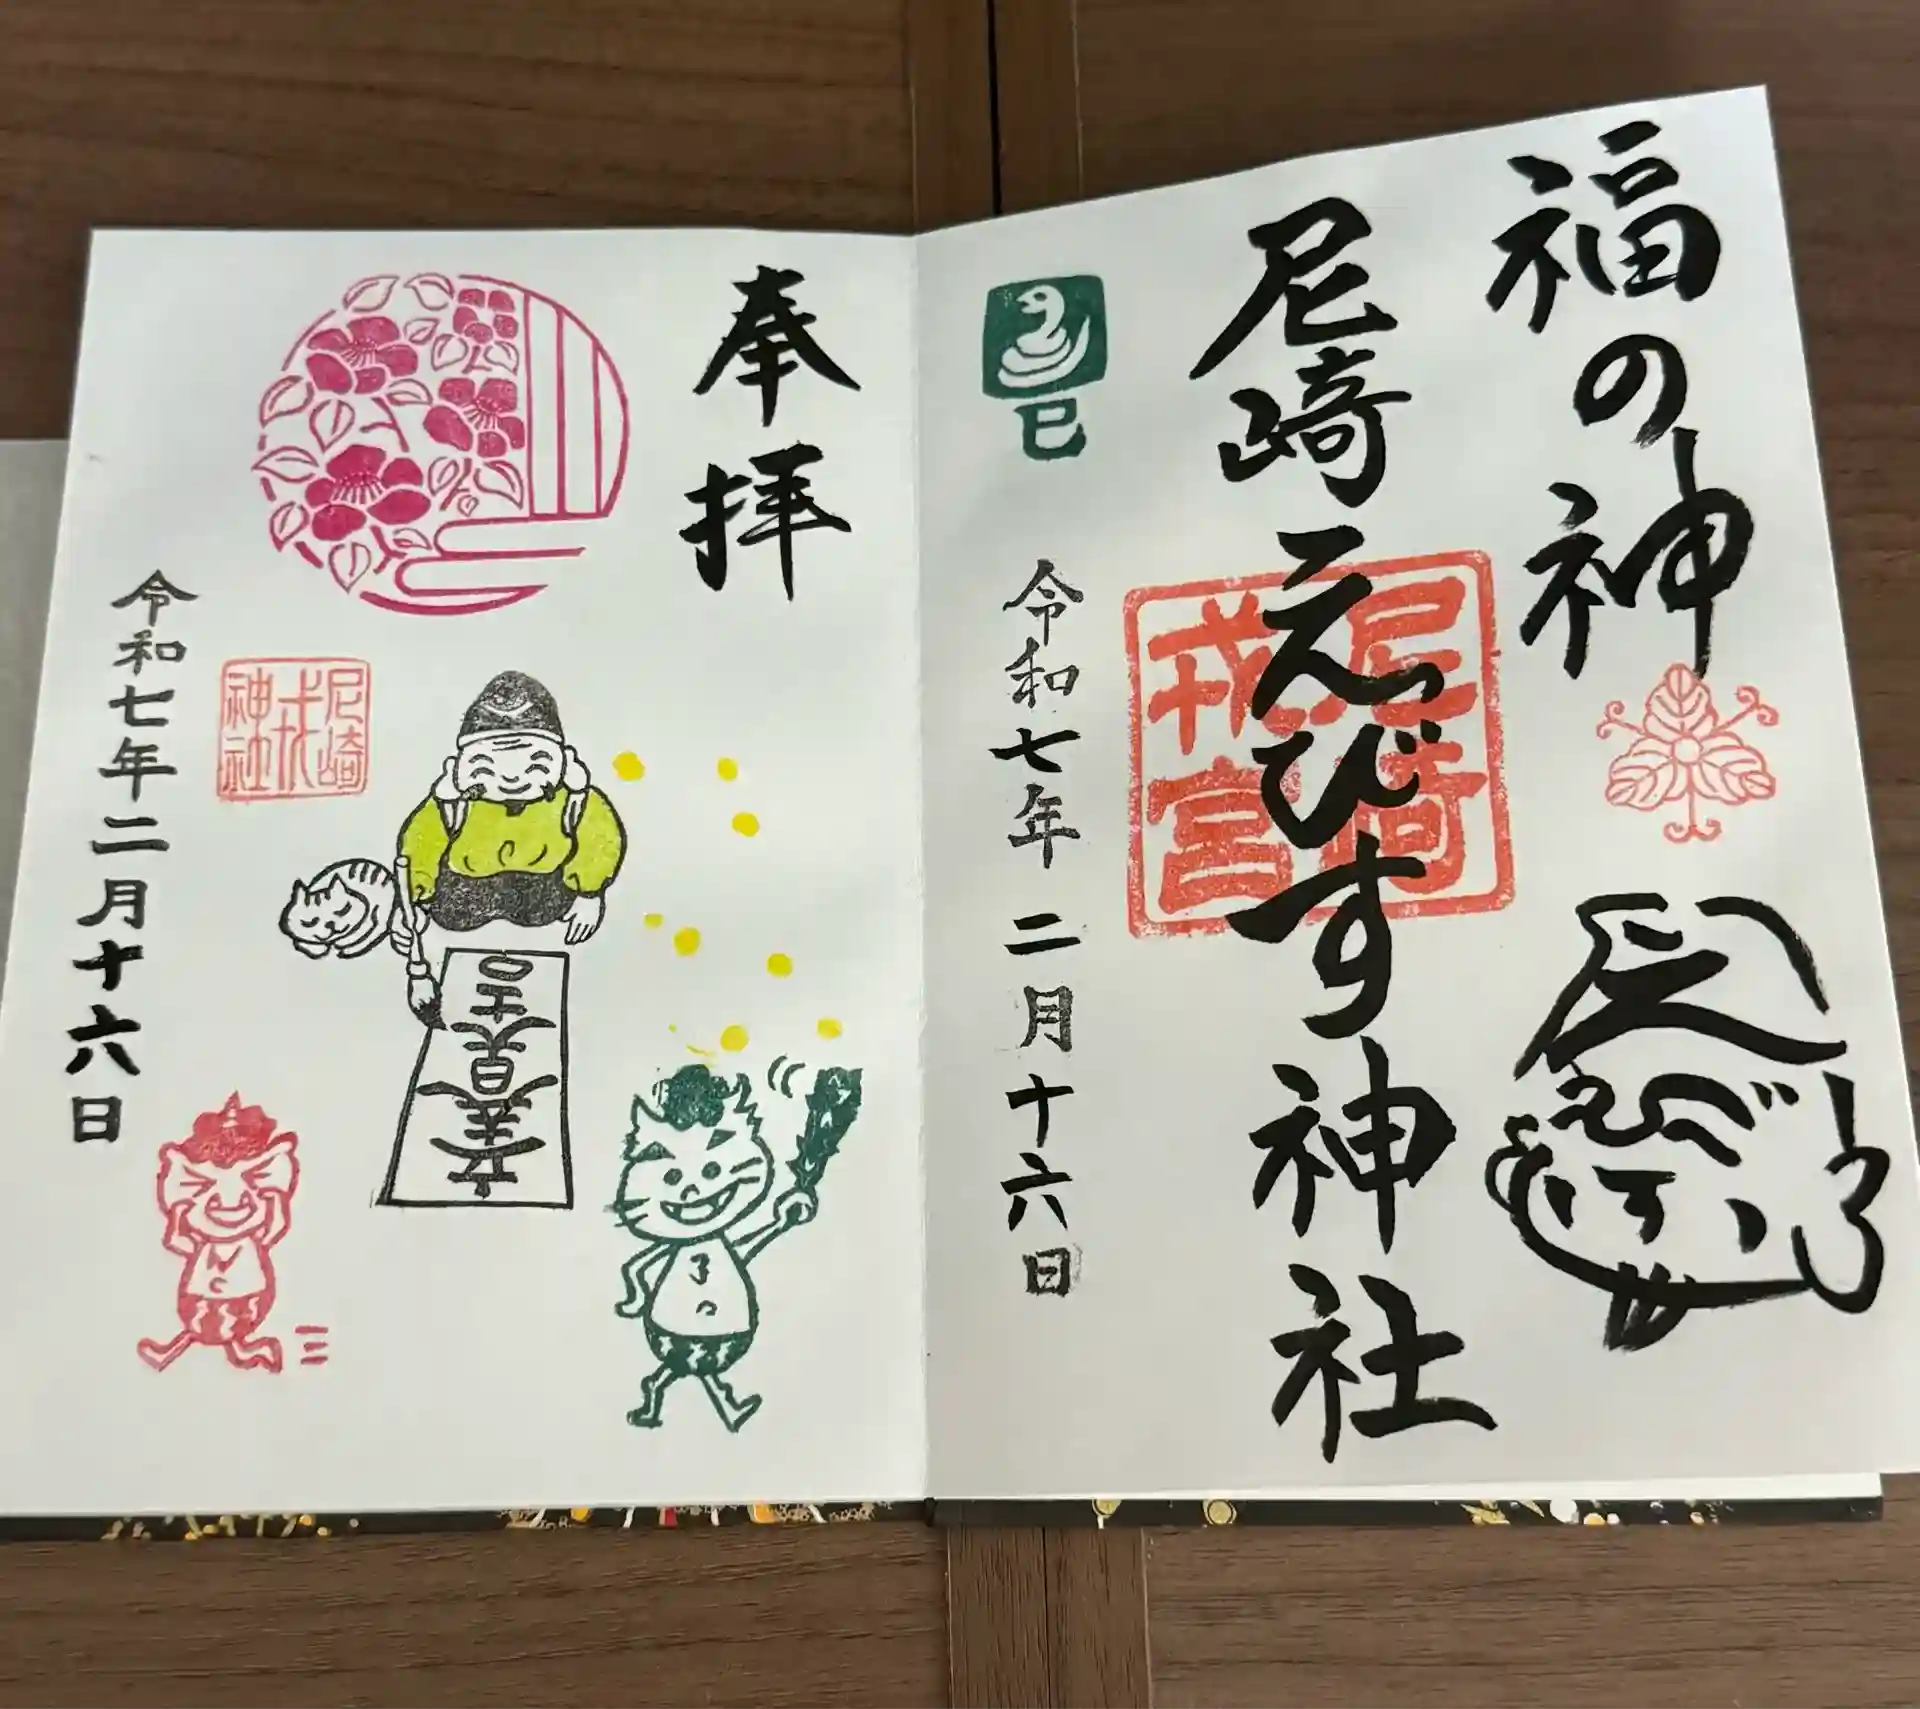 福の神
尼崎えびす神社
尼崎戎宮
巳
令和七年二月十六日
奉拝
立春大吉
尼崎戎神社
令和七年二月十六日